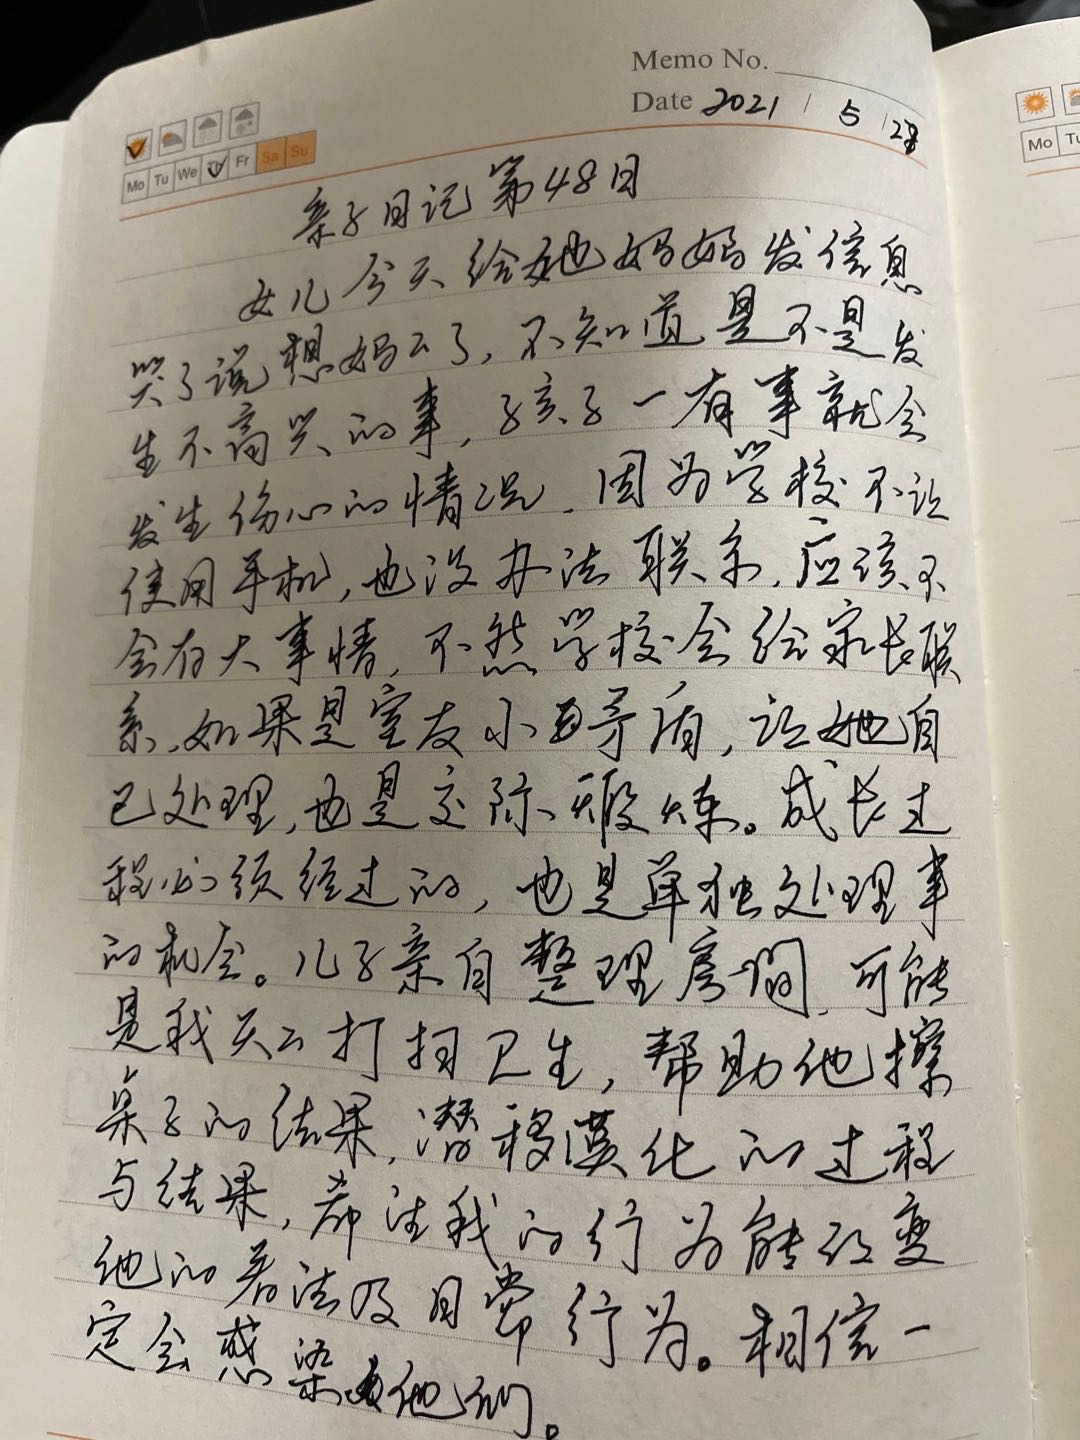 Memo No.
Date 2021 / 5 / 28
Mo Tu We Th Fr Sa Su
Mo Tu
亲子日记第48日
女儿今天给她妈妈发信息
哭了说想妈么了,不知道是不是发
生不高兴的事,孩子一有事就会
发生伤心的情况.因为学校不让
使用手机,也没办法联系,应该不
会有大事情,不然学校会给家长联
系.如果是室友小矛盾,让她自
己处理,也是交际锻炼。成长过
程必须经过的,也是单独处理事
的机会。儿子亲自整理房间,可能
是我天々打扫卫生,帮助他擦
桌子的结果,潜移漠化的过程
与结果,希望我的行为能改变
他的看法及日常行为。相信一
定会感染他们。